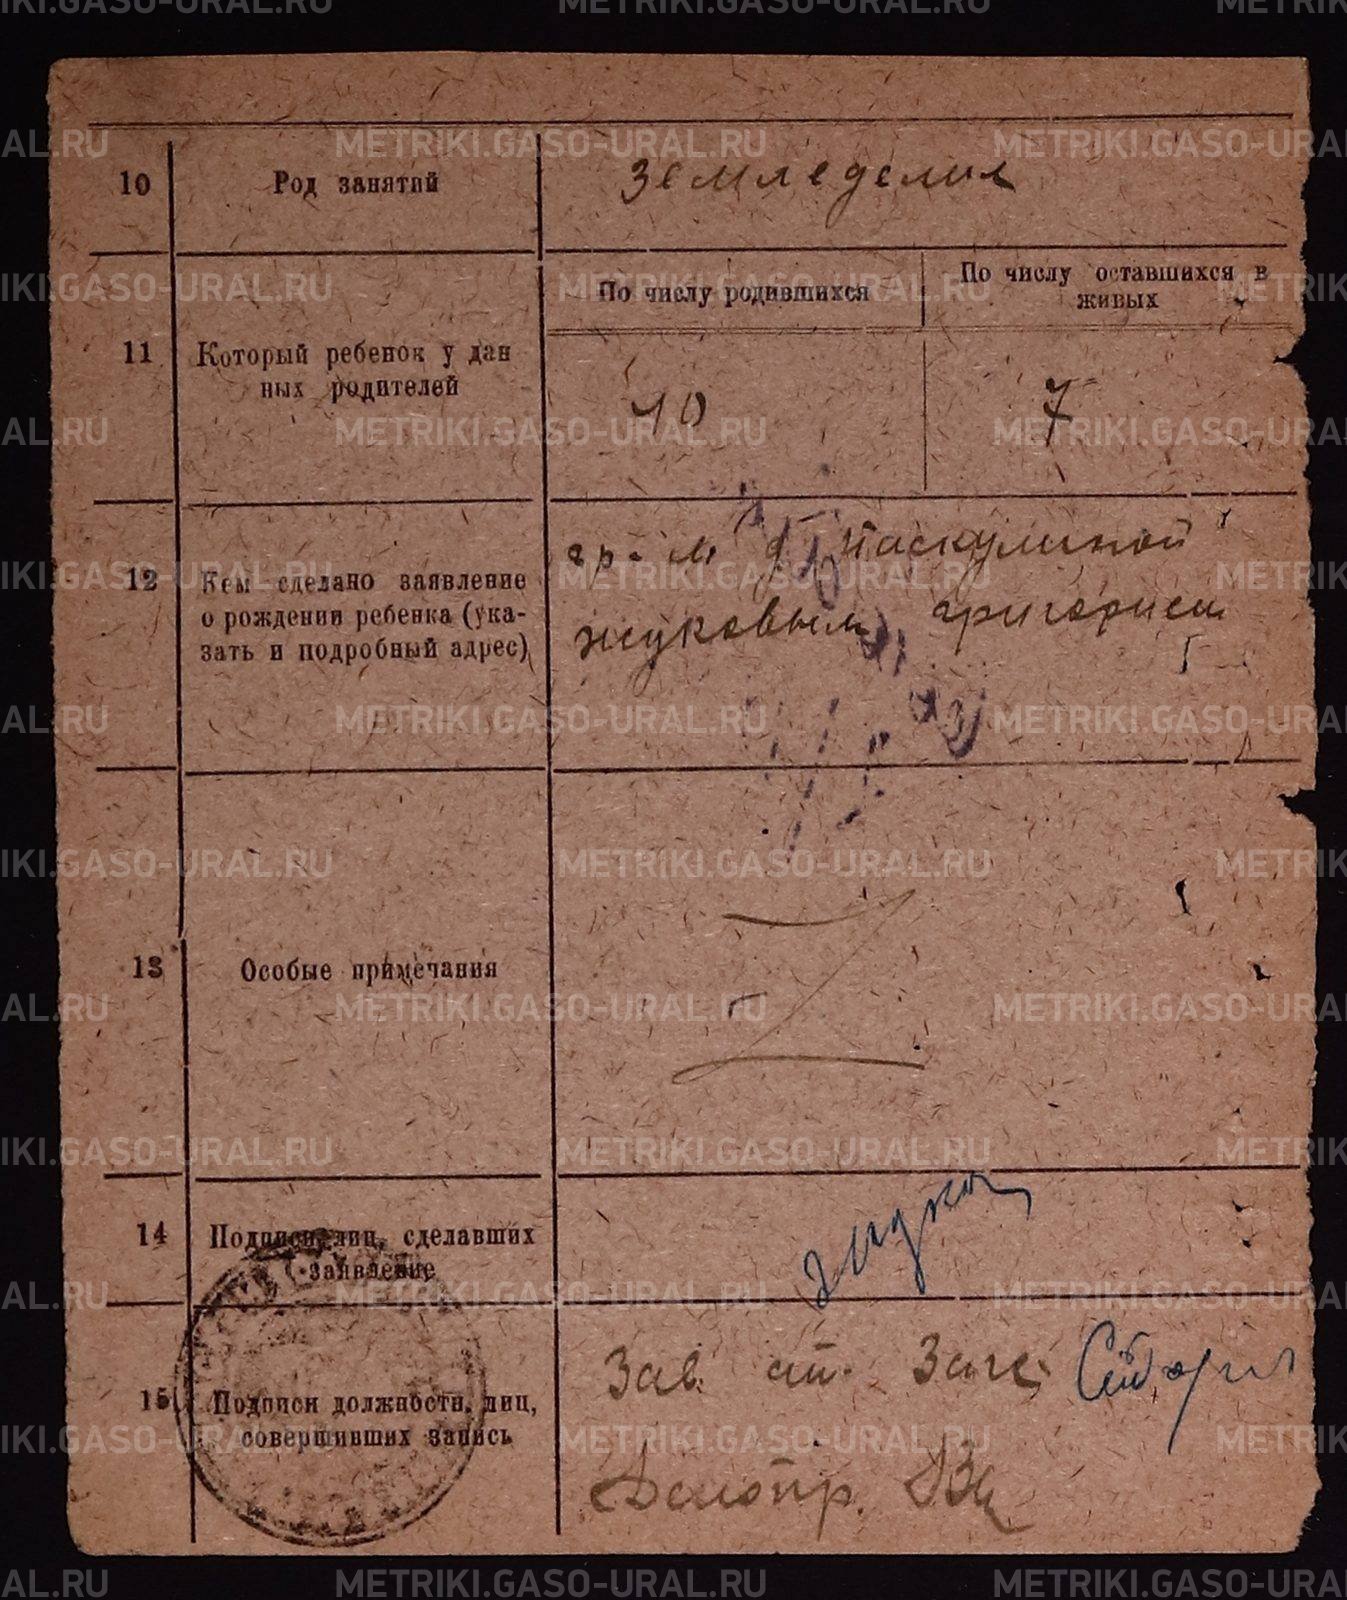 10
Род занятий
Земледелия
11
Который ребенок у дан
ных родителей
По числу родившихся
По числу оставшихся в
живых
10
7
12
Кем сделано заявление
о рождении ребенка (ука-
зать и подробный адрес)
гр. м д. Паскулиной
Жуковым, григорием
13
Особые примечания
14
Подписи лиц, сделавших
заявление
Жуков
15
Подписи должностн. лиц,
совершивших запись
Зав. ст. Загс.
Делопр.
METRIKI.GASO-URAL.RU